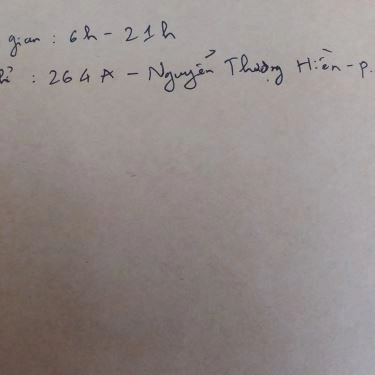 gian : 6h - 21h
chỉ : 264A - Nguyễn Thượng Hiền - p.